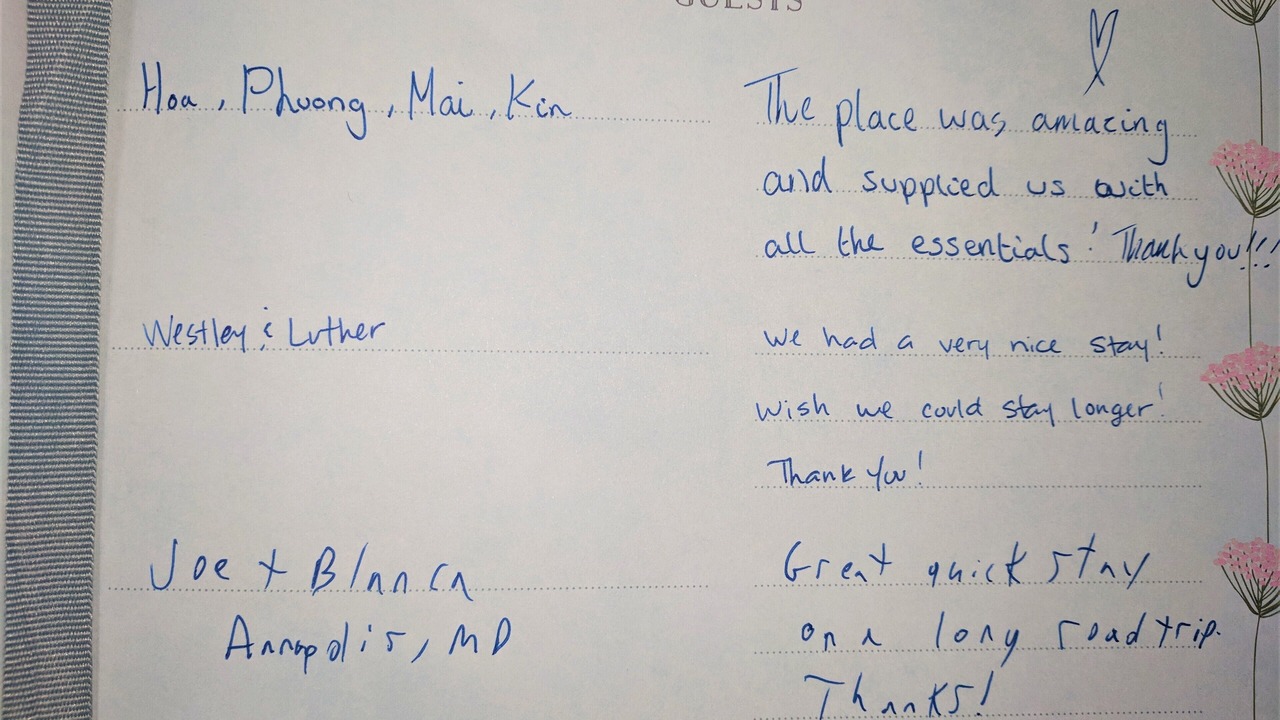 GUESTS
Hoa, Phuong, Mai, Kin
The place was amazing
and supplied us with
all the essentials! Thank you!!!
Westley & Luther
We had a very nice stay!
Wish we could stay longer!
Thank You!
Joe + Blanca
Annapolis, MD
Great quick stay
on a long road trip.
Thanks!